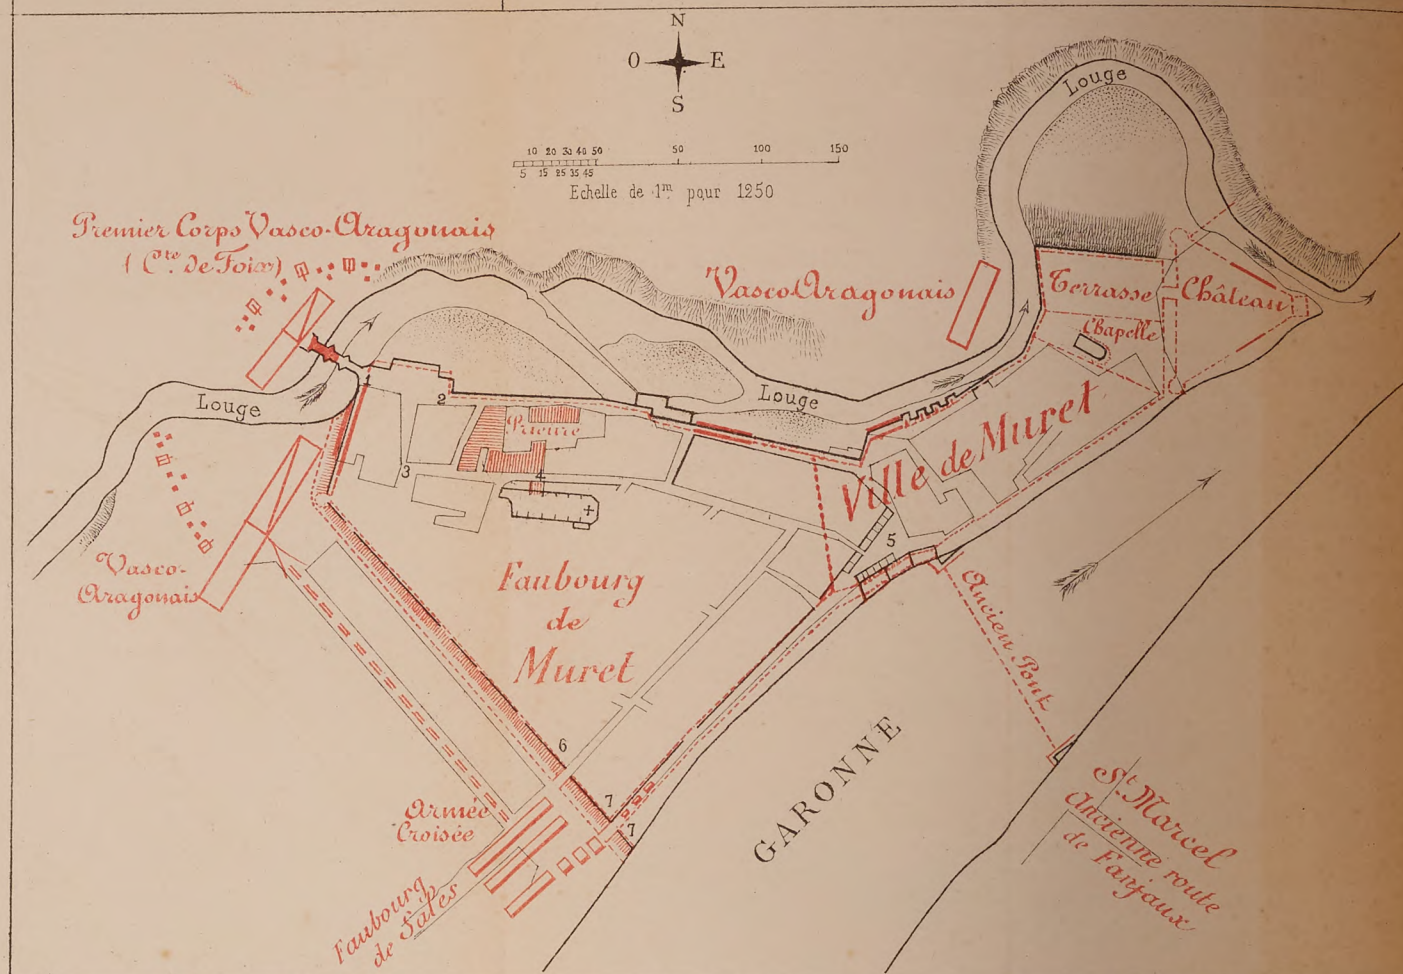 N
O E
S
10 20 30 40 50 50 100 150
5 15 25 35 45
Echelle de 1m pour 1250
Louge
Premier Corps Vasco-Aragonais
(Cte de Foix)
Vasco-Aragonais
Terrasse
Château
Chapelle
Louge
Louge
1
2
Prieuré
3
4
Ville de Muret
5
Vasco-
Aragonais
Faubourg
de
Muret
Ancien Pont
6
7
7
Armée
Croisée
GARONNE
Faubourg
de Sales
St. Marcel
Ancienne route
de Fanjaux